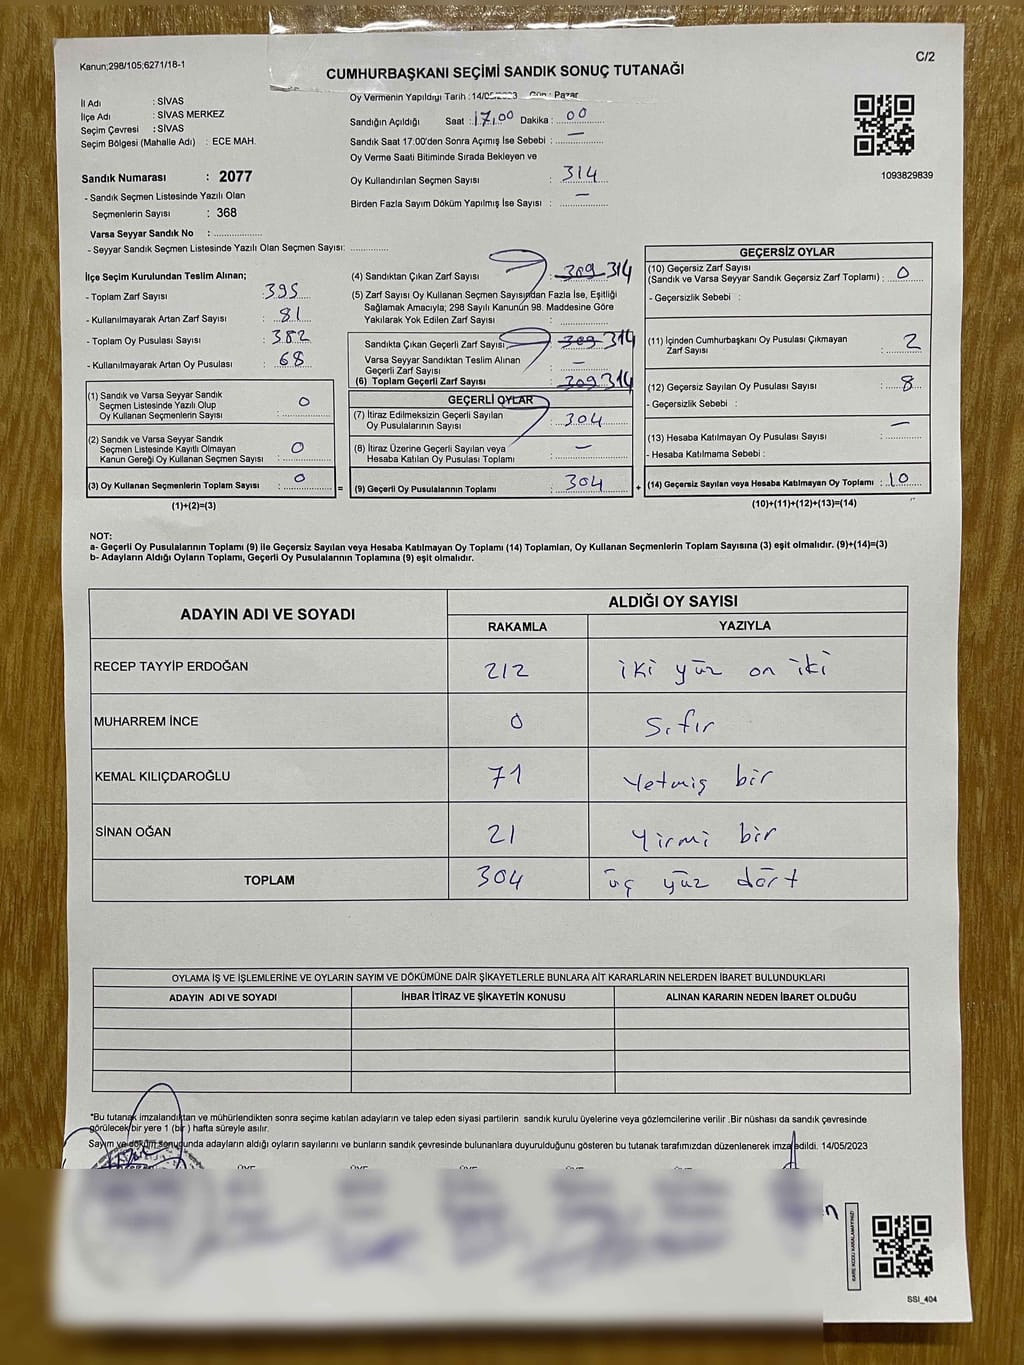 Kanun;298/105;6271/18-1
C/2
CUMHURBAŞKANI SEÇİMİ SANDIK SONUÇ TUTANAĞI
İl Adı : SİVAS
İlçe Adı : SİVAS MERKEZ
Seçim Çevresi : SİVAS
Seçim Bölgesi (Mahalle Adı) : ECE MAH.
Sandık Numarası : 2077
- Sandık Seçmen Listesinde Yazılı Olan
Seçmenlerin Sayısı : 368
Varsa Seyyar Sandık No : ..................
- Seyyar Sandık Seçmen Listesinde Yazılı Olan Seçmen Sayısı: .............
Oy Vermenin Yapıldığı Tarih :14/05/2023 Gün : Pazar
Sandığın Açıldığı Saat : 17.00 Dakika : 00
Sandık Saat 17:00'den Sonra Açımış İse Sebebi : —
Oy Verme Saati Bitiminde Sırada Bekleyen ve
Oy Kullandırılan Seçmen Sayısı : 314
Birden Fazla Sayım Döküm Yapılmış İse Sayısı : —
1093829839
İlçe Seçim Kurulundan Teslim Alınan;
- Toplam Zarf Sayısı : 395
- Kullanılmayarak Artan Zarf Sayısı : 81
- Toplam Oy Pusulası Sayısı : 382
- Kullanılmayarak Artan Oy Pusulası : 68
(1) Sandık ve Varsa Seyyar Sandık
Seçmen Listesinde Yazılı Olup
Oy Kullanan Seçmenlerin Sayısı : 0
(2) Sandık ve Varsa Seyyar Sandık
Seçmen Listesinde Kayıtlı Olmayan
Kanun Gereği Oy Kullanan Seçmen Sayısı : 0
(3) Oy Kullanan Seçmenlerin Toplam Sayısı : 0
(1)+(2)=(3)
=
(4) Sandıktan Çıkan Zarf Sayısı : 309 314
(5) Zarf Sayısı Oy Kullanan Seçmen Sayısından Fazla İse, Eşitliği
Sağlamak Amacıyla; 298 Sayılı Kanunun 98. Maddesine Göre
Yakılarak Yok Edilen Zarf Sayısı : ...............
Sandıkta Çıkan Geçerli Zarf Sayısı : 309 314
Varsa Seyyar Sandıktan Teslim Alınan
Geçerli Zarf Sayısı : —
(6) Toplam Geçerli Zarf Sayısı : 309 314
GEÇERLİ OYLAR
(7) İtiraz Edilmeksizin Geçerli Sayılan
Oy Pusulalarının Sayısı : 304
(8) İtiraz Üzerine Geçerli Sayılan veya
Hesaba Katılan Oy Pusulası Toplamı : —
(9) Geçerli Oy Pusulalarının Toplamı : 304
+
GEÇERSİZ OYLAR
(10) Geçersiz Zarf Sayısı
(Sandık ve Varsa Seyyar Sandık Geçersiz Zarf Toplamı) : 0
- Geçersizlik Sebebi :
(11) İçinden Cumhurbaşkanı Oy Pusulası Çıkmayan
Zarf Sayısı : 2
(12) Geçersiz Sayılan Oy Pusulası Sayısı : 8
- Geçersizlik Sebebi :
(13) Hesaba Katılmayan Oy Pusulası Sayısı : —
- Hesaba Katılmama Sebebi :
(14) Geçersiz Sayılan veya Hesaba Katılmayan Oy Toplamı : 10
(10)+(11)+(12)+(13)=(14)
NOT:
a- Geçerli Oy Pusulalarının Toplamı (9) ile Geçersiz Sayılan veya Hesaba Katılmayan Oy Toplamı (14) Toplamları, Oy Kullanan Seçmenlerin Toplam Sayısına (3) eşit olmalıdır. (9)+(14)=(3)
b- Adayların Aldığı Oyların Toplamı, Geçerli Oy Pusulalarının Toplamına (9) eşit olmalıdır.
ADAYIN ADI VE SOYADI
ALDIĞI OY SAYISI
RAKAMLA YAZIYLA
RECEP TAYYİP ERDOĞAN 212 iki yüz on iki
MUHARREM İNCE 0 Sıfır
KEMAL KILIÇDAROĞLU 71 Yetmiş bir
SİNAN OĞAN 21 Yirmi bir
TOPLAM 304 üç yüz dört
OYLAMA İŞ VE İŞLEMLERİNE VE OYLARIN SAYIM VE DÖKÜMÜNE DAİR ŞİKAYETLERLE BUNLARA AİT KARARLARIN NELERDEN İBARET BULUNDUKLARI
ADAYIN ADI VE SOYADI İHBAR İTİRAZ VE ŞİKAYETİN KONUSU ALINAN KARARIN NEDEN İBARET OLDUĞU
*Bu tutanak imzalandıktan ve mühürlendikten sonra seçime katılan adayların ve talep eden siyasi partilerin sandık kurulu üyelerine veya gözlemcilerine verilir .Bir nüshası da sandık çevresinde
görülecek bir yere 1 (bir ) hafta süreyle asılır.
Sayım ve döküm sonucunda adayların aldığı oyların sayılarını ve bunların sandık çevresinde bulunanlara duyurulduğunu gösteren bu tutanak tarafımızdan düzenlenerek imza edildi. 14/05/2023
KARE KODU KARALAMAYINIZ!
SSI_404